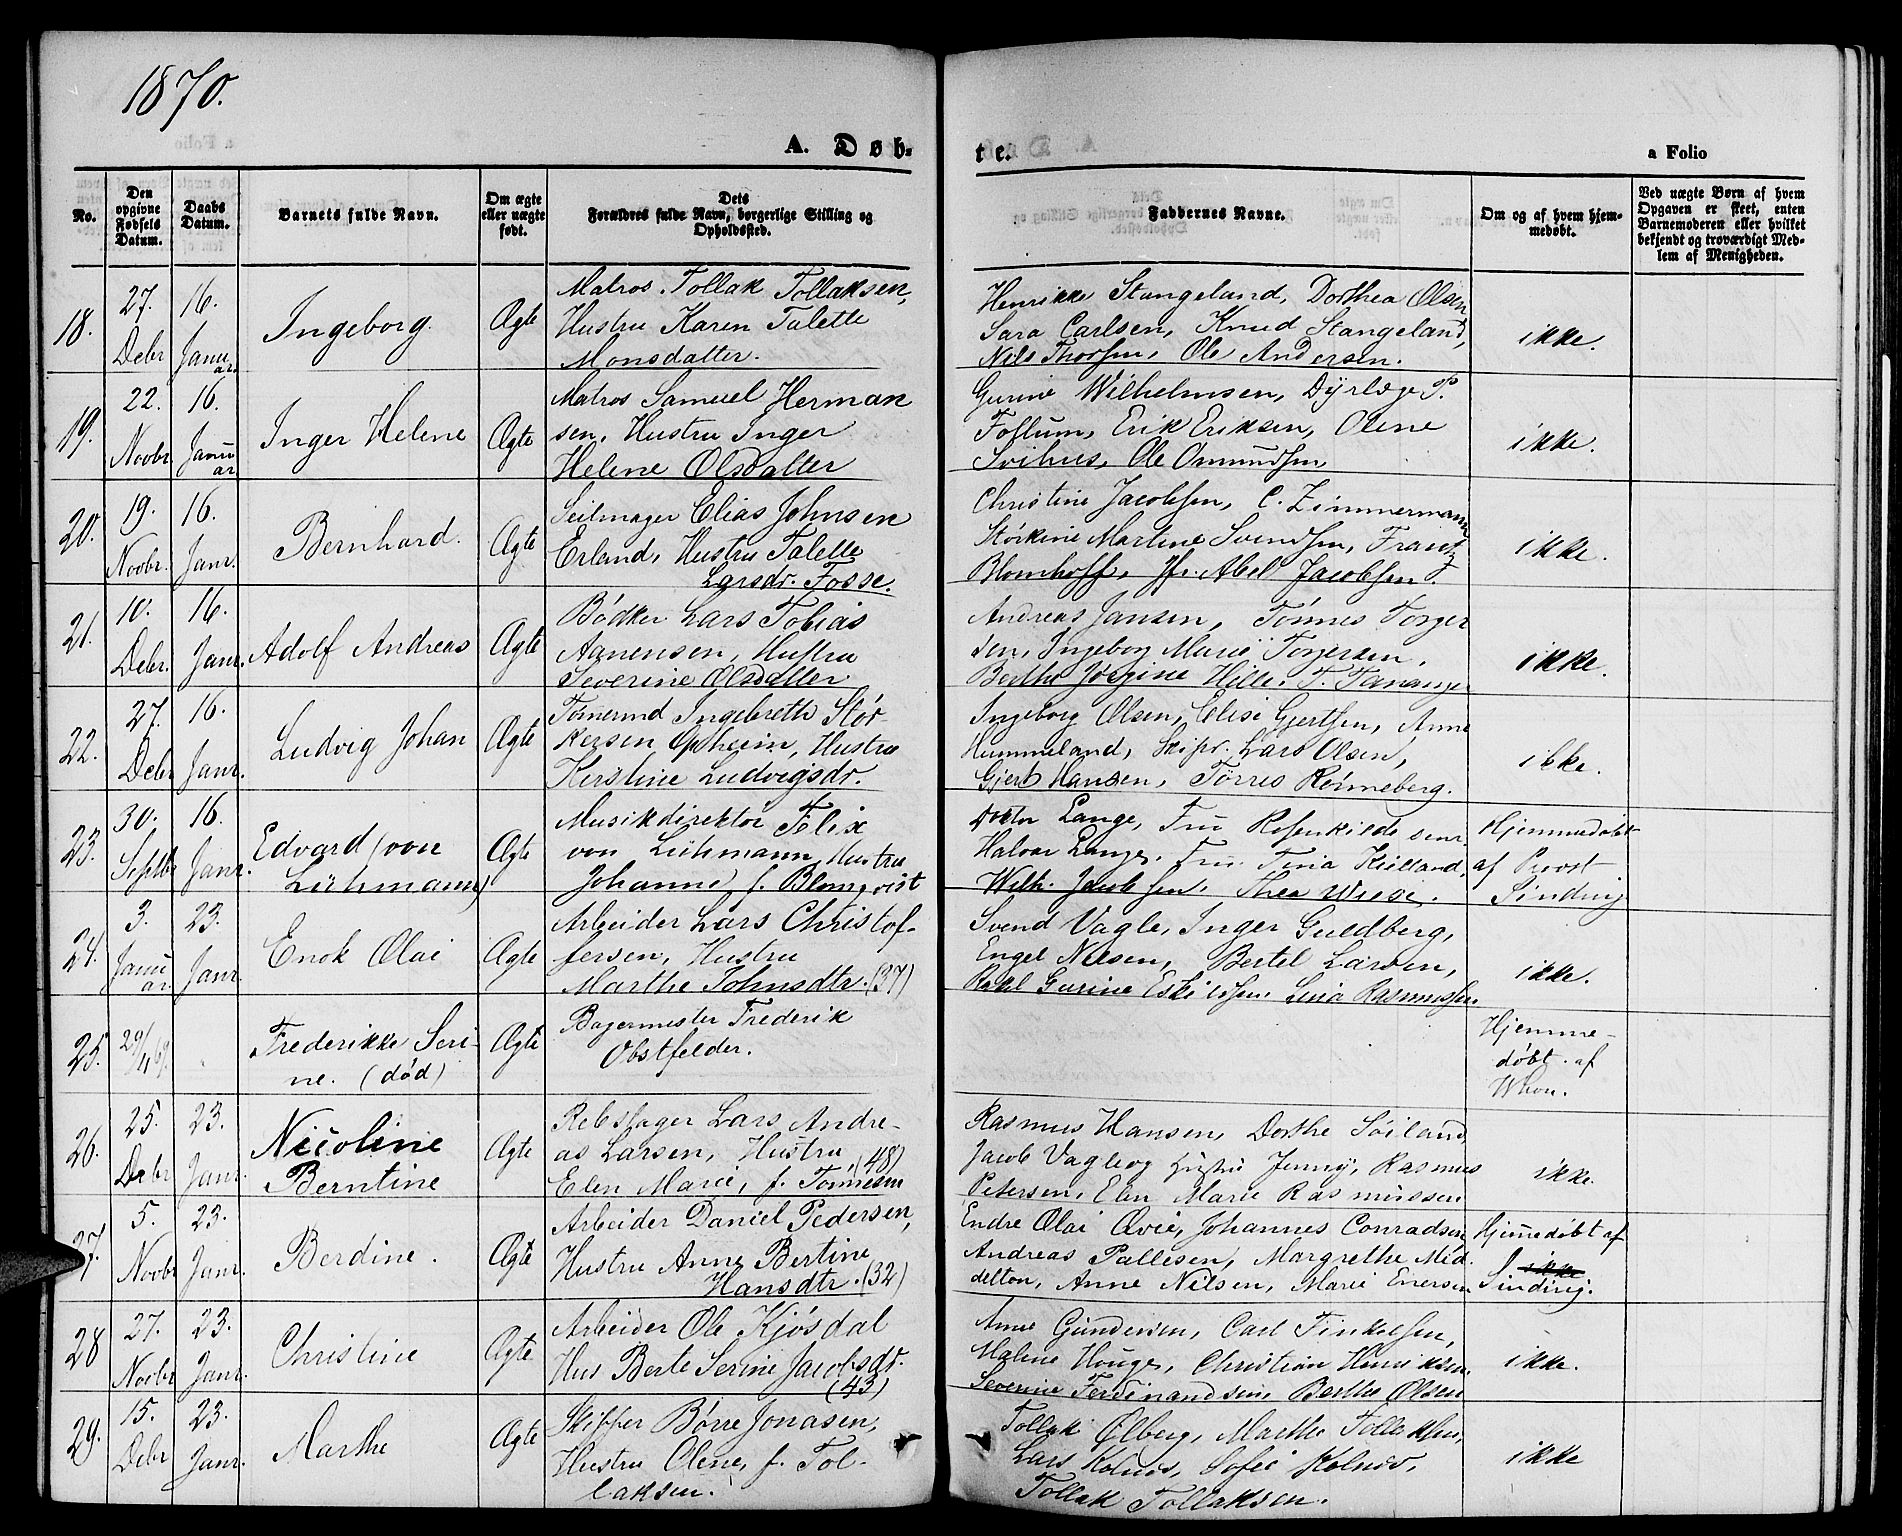 1870.
A. Døb-
te.
a Folio
No.
Den opgivne Fødsels Datum.
Daabs Datum.
Barnets fulde Navn.
Om ægte eller uægte født.
Dets Forældres fulde Navn, borgerlige Stilling og Opholdssted.
Faddernes Navne.
Om og af hvem hjemmedøbt.
Ved uægte Børn af hvem Opgaven er skeet, enten Barnemoderen eller hvilket bekjendt og troværdigt Medlem af Menigheden.
18.
27. Debr
16. Januar.
Ingeborg.
Ægte
Matros Tollak Tollaksen,
Hustru Karen Talette
Monsdatter.
Henrikke Stangeland, Dorthea Olsen
Sara Carlsen, Knud Stangeland,
Nils Thorsen, Ole Andersen.
ikke.
19.
22. Novbr
16. Januar
Inger Helene
Ægte
Matros Samuel Herman
sen, Hustru Inger
Helene Olsdatter
Gurine Wilhelmsen, Dyrlæge P.
Follum, Erik Eriksen, Olene
Svihus, Ole Omundsen
ikke.
20.
19. Novbr.
16. Janr.
Bernhard.
Ægte
Seilmager Elias Johnsen
Erland, Hustru Talette
Larsdr. Fosse.
Christine Jacobsen, C. Zimmermann
Störkine Martine Svendsen, Frantz
Blomhoff, Jfr. Abel Jacobsen.
ikke.
21.
10. Debr.
16. Janr.
Adolf Andreas
Ægte
Bödker Lars Tobias
Aanensen, Hustru
Severine Olsdatter
Andreas Jansen, Tönnes Torger
sen, Ingeborg Marie Torgersen,
Berthe Jörgine Hille, T. Tananger
ikke.
22.
27. Debr
16. Janr.
Ludvig Johan
Ægte
Tømermd Ingebreth Stör-
kersen Opheim, Hustru
Kerstine Ludvigsdr.
Ingeborg Olsen, Elise Gjertsen, Anne
Hummeland, Skipr. Lars Olsen,
Gjert Hansen, Törres Rönneberg.
ikke.
23.
30. Septbr
16. Janr.
Edvard (von
Lühmann)
Ægte
Musikdirektör Felix
von Lühmann, Hustru
Johanne f. Blomqvist
Doktor Lange, Fru Rosenkilde senr
Halvor Lange, Fru Tina Kielland,
Wilh. Jacobsen, Thea Wiese.
Hjemmedöbt
af Provst
Sinding
24.
3. Januar
23. Janr.
Enok Olai
Ægte
Arbeider Lars Christof-
fersen, Hustru
Marthe Johnsdtr. (37)
Svend Vagle, Inger Guldberg,
Engel Nilsen, Bertel Larsen,
Rakel Gurine Eskildsen, Lina Rasmussen
ikke.
25.
29/11 69.
Frederikke Seri-
ne. (död)
Ægte
Bagermester Frederik
Obstfelder.
Hjemme-
döbt af
26.
25. Debr
23. Janr.
Nicoline
Berntine
Ægte
Rebslager Lars Andre-
as Larsen, Hustru
Elen Marie, f. Tönnesen (48)
Rasmus Hansen, Dorthe Söiland
Jacob Vagle og Hustru Jenny, Rasmus
Petersen, Elen Marie Rasmussen
ikke.
27.
5. Novbr
23. Janr.
Berdine.
Ægte
Arbeider Daniel Pedersen,
Hustru Anne Bertine
Hansdtr. (32)
Endre Olai Qvie, Johannes Conradsen
Andreas Pallesen, Margrethe Mid-
delton, Anne Nilsen, Marie Enersen
Hjemedöbt af
ikke
Sinding.
28
27. Novbr
23. Janr.
Christine
Ægte
Arbeider Ole Kjösdal
Hus Berte Serine Jacobsdr.
(43)
Anne Gundersen, Carl Finkelsen,
Malene Houge, Christian Henriksen
Severine Ferdinandsen, Berthe Olsen
ikke.
29.
15. Debr
23. Janr.
Marthe
Ægte
Skipper Börre Jonasen,
Hustru Olene, f. Tol-
laksen.
Tollak Ølberg, Marthe Tollaksen,
Lars Kolnes, Sofie Kolnes,
Tollak Tollaksen.
ikke